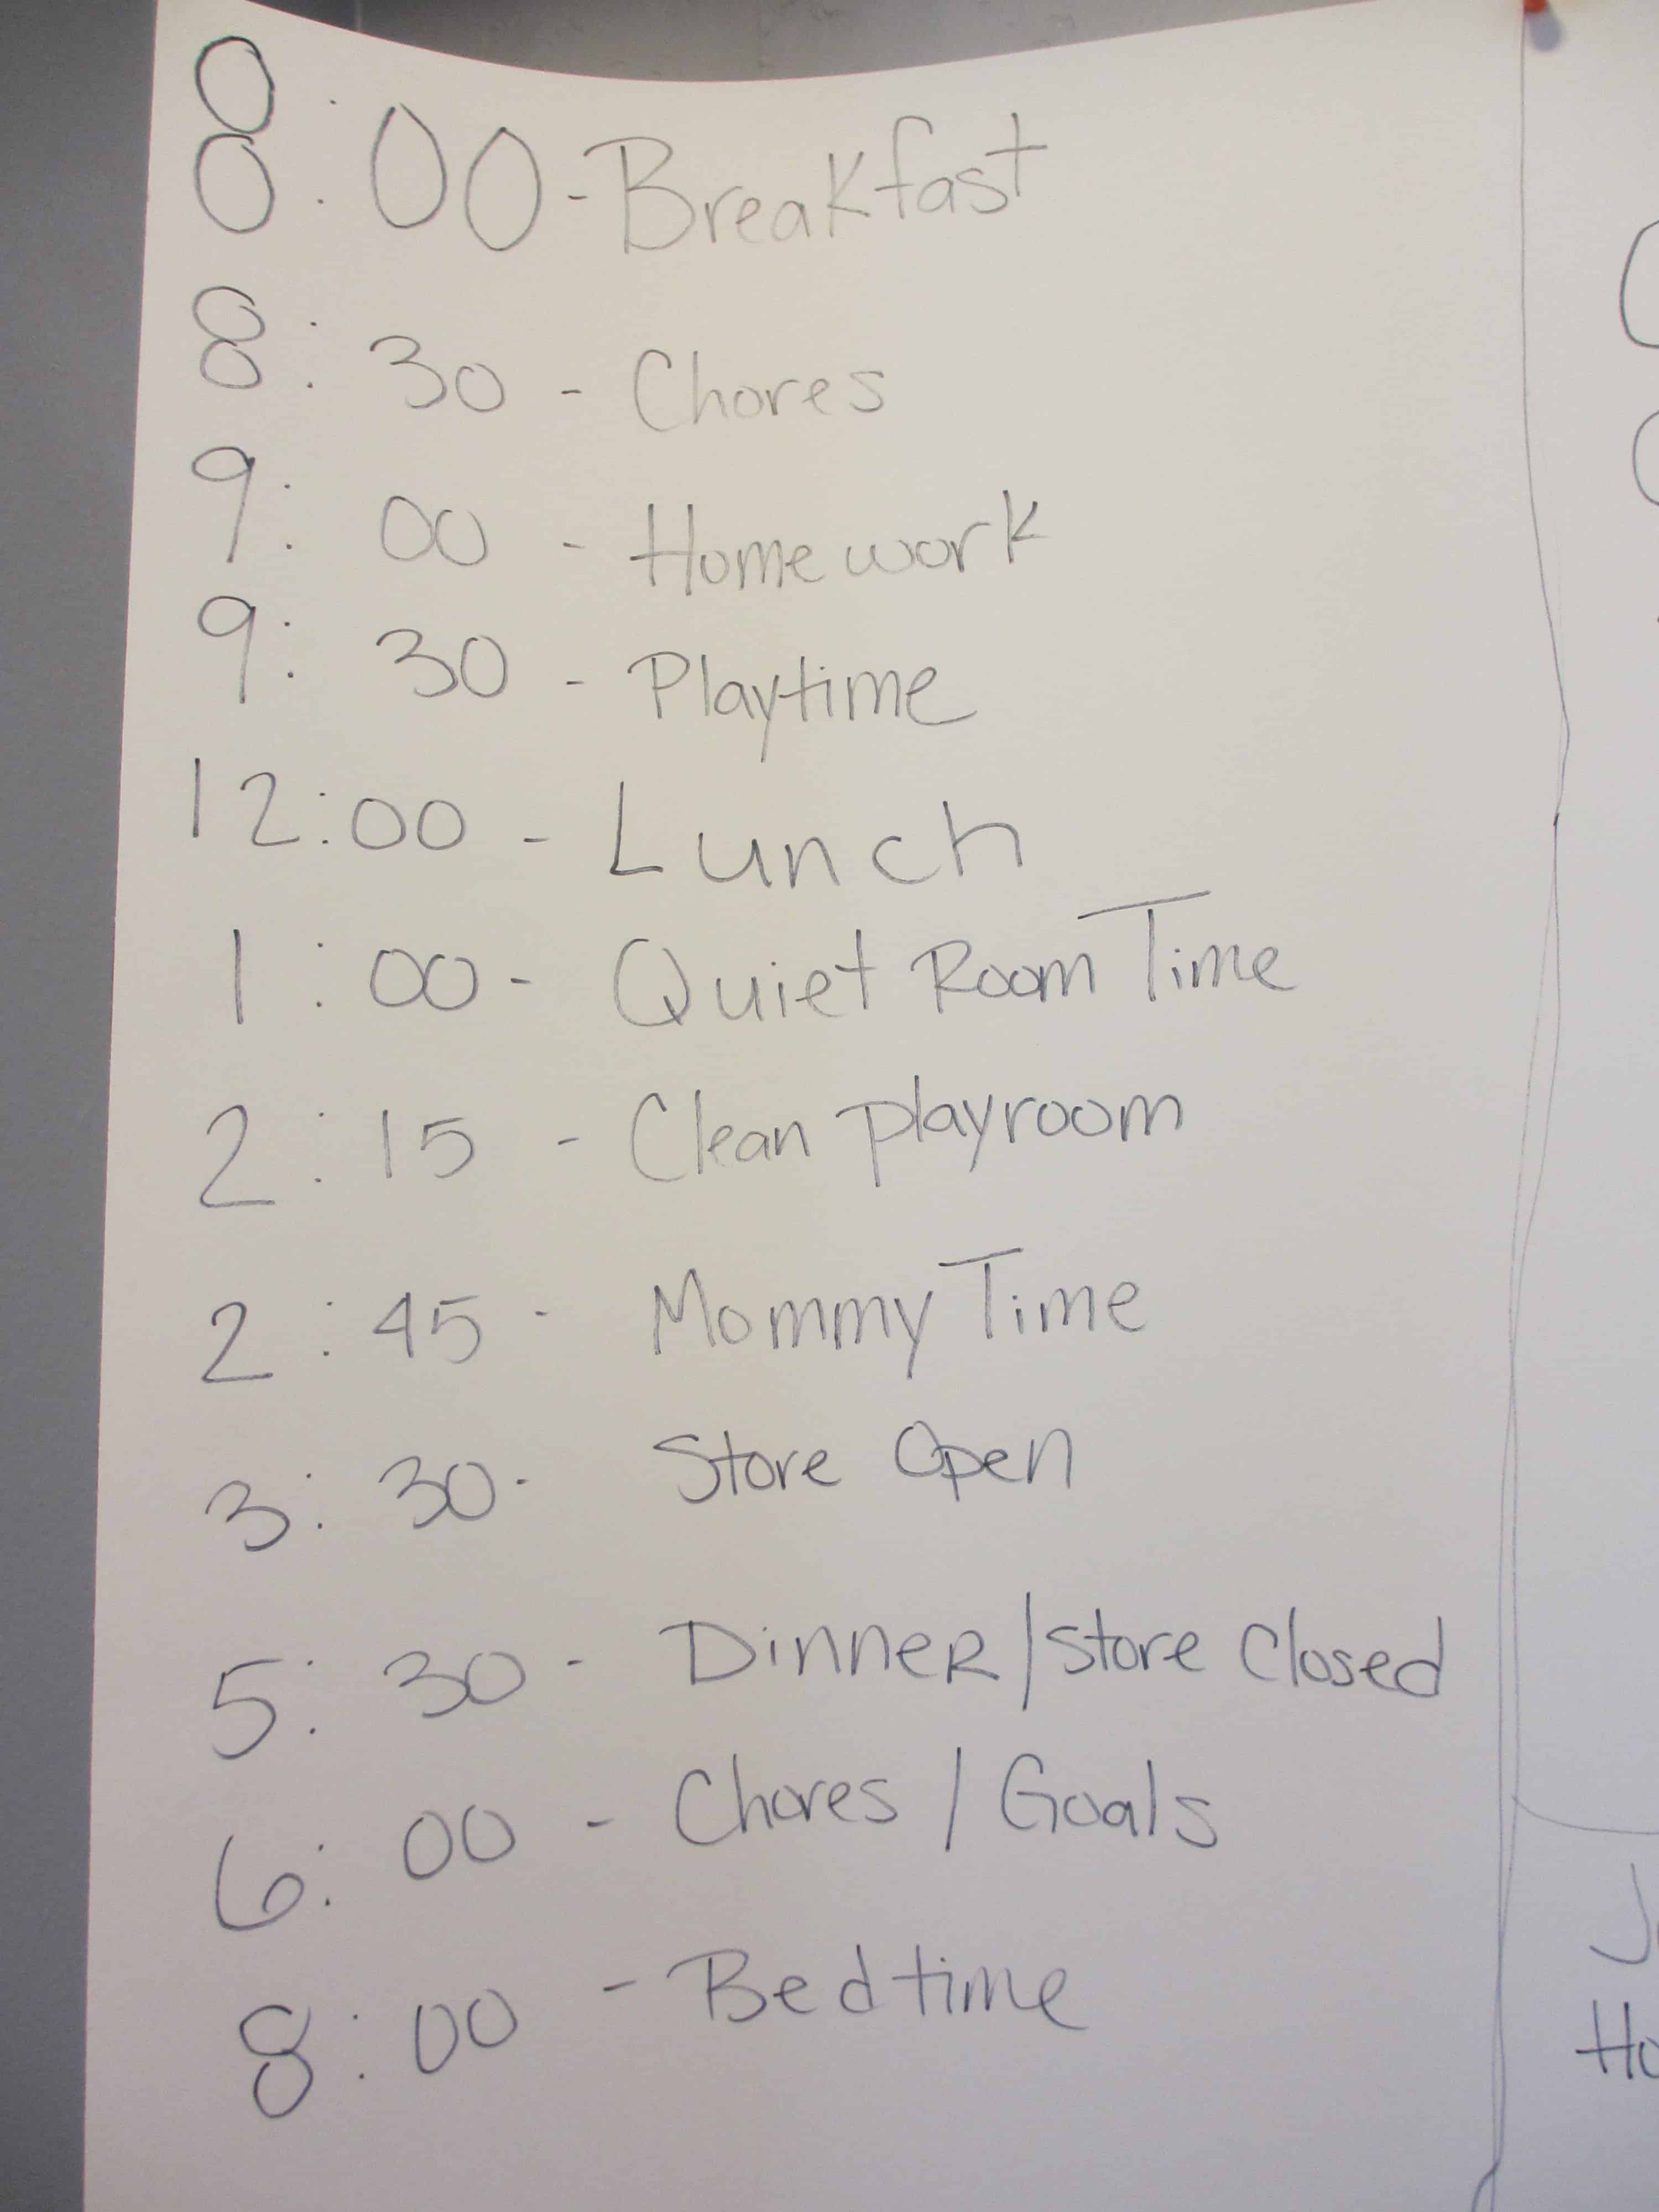 8:00 - Breakfast
8:30 - Chores
9:00 - Homework
9:30 - Playtime
12:00 - Lunch
1:00 - Quiet Room Time
2:15 - Clean playroom
2:45 - Mommy Time
3:30 - Store Open
5:30 - Dinner/Store Closed
6:00 - Chores / Goals
8:00 - Bedtime